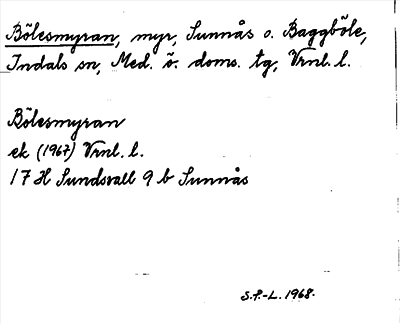 Bölesmyran, myr, Sunnås o. Baggböle,
Indals sn, Med. ö. doms. tg, Vrnl. l.
Bölesmyran
ek (1967) Vrnl. l.
17 H Sundsvall 9 b Sunnås
S.P.-L. 1968.